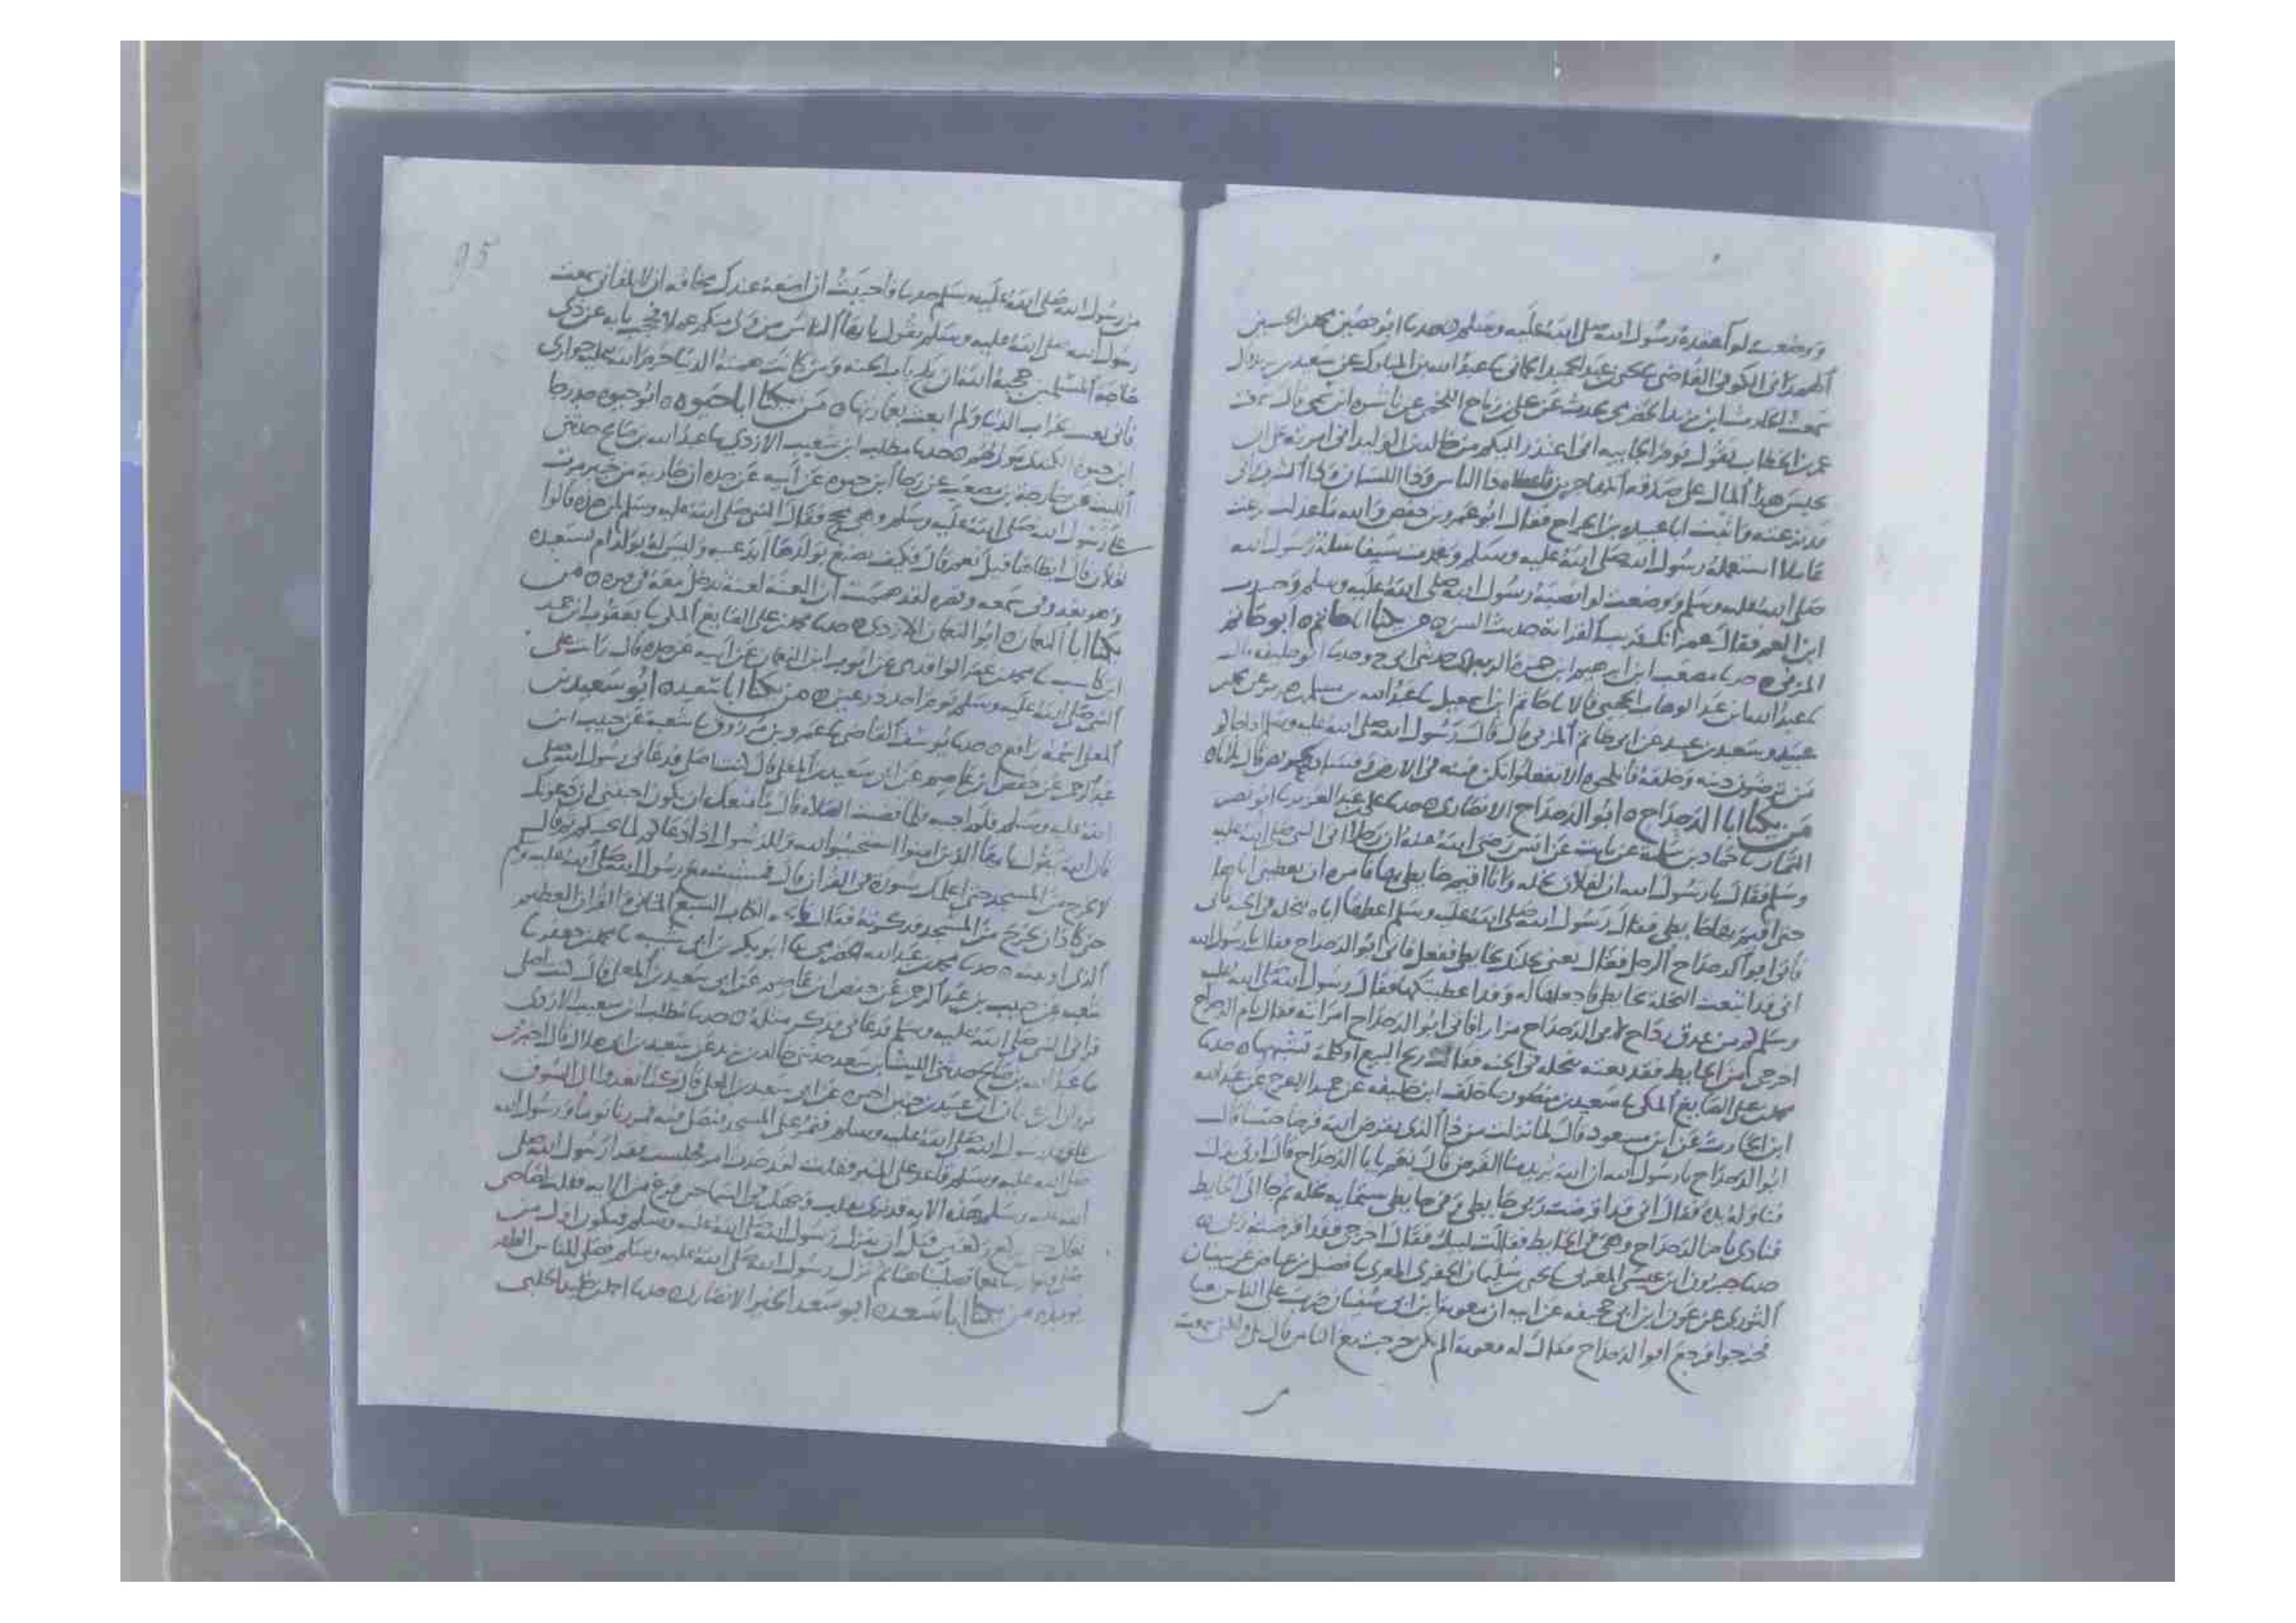 ووضعت لوا عقده رسول الله صلى الله عليه وسلم ٥ حدثنا ابو حصين محمد بن الحسين
القاضي يحيى بن عبد الحميد الحماني عبد الله بن المبارك عن سعيد بن
سمعت الحارث ابن يزيد الحضرمي يحدث عن علي بن رباح اللخمي عن ناشره ابن سمي قال سمعت
عمر بن الخطاب يقول يوم الجابيه اني اعتذر اليكم من خالد بن الوليد اني امرته على ان
يحبس هذا المال على المهاجرين ذا الباس وذا اللسان وذا الشرف اني
قد نزعته واثبت ابا عبيده بن الجراح فقال ابو عمرو بن حفص والله ما عدلت نزعت
عاملا استعمله رسول الله صلى الله عليه وسلم وغمدت سيفا سله رسول الله
صلى الله عليه وسلم ووضعت لوا نصبه رسول الله صلى الله عليه وسلم وحسدت
ابن العم فقال عمر انك قريب القرابه حديث السن ٥ من يكنا ابا حاتم ٥ ابو حاتم
المزني ٥ حدثنا مصعب ابن ابرهيم ابن حمزه حدثني ابي ح وحدثنا ابو خليفه قال
عبد الله ابن عبد الوهاب الحجبي قالا حاتم ابن اسمعيل عبد الله بن مسلم بن هرمز عن محمد
عبيد وسعيد بن عبيد عن ابي حاتم المزني قال قال رسول الله صلى الله عليه وسلم اذا جاكم
من ترضون دينه وخلقه فانكحوه الا تفعلوا تكن فتنه في الارض وفساد
من يكنا ابا الدحداح ٥ ابو الدحداح الانصاري ٥ حدثنا علي بن عبد العزيز ابو نصر
التمار حماد بن سلمه عن ثابت عن انس رضي الله عنه ان رجلا اتى النبي صلى الله عليه
وسلم فقال يا رسول الله ان لفلان نخله وانا اقيم حايطي بها فامره ان يعطيني اياها
حتى اقيم بها حايطي فقال رسول الله صلى الله عليه وسلم اعطها اياه بنخله في الجنه فابى
فاتى ابو الدحداح الرجل فقال بعني نخلتك بحايطي ففعل فاتى ابو الدحداح فقال يا رسول الله
اني قد ابتعت النخله بحايطي فاجعلها له وقد اعطيتكها فقال رسول الله صلى الله عليه
وسلم كم من عذق رداح لابي الدحداح مرارا فاتى ابو الدحداح امراته فقال يا ام الدحداح
اخرجي من الحايط فقد بعته بنخله في الجنه فقالت ربح البيع او كلمه تشبهها ٥ حدثنا
محمد بن علي الصايغ المكي سعيد بن منصور خلف ابن خليفه عن حميد الاعرج عن عبد الله
ابن الحارث عن ابن مسعود قال لما نزلت من ذا الذي يقرض الله قرضا حسنا قال
ابو الدحداح يا رسول الله ان الله يريد منا القرض قال نعم يا با الدحداح قال ارني يدك
فناوله يده فقال اني قد اقرضت ربي حايطي وفي حايطي ستمايه نخله ثم جا الى الحايط
فنادى يا ام الدحداح وهي في الحايط فقالت لبيك فقال اخرجي فقد اقرضته ربي
حدثنا جبرون ابن عيسى المغربي يحيى بن سليمان الجفري المغربي فضيل بن عياض عن سفيان
الثوري عن عون ابن ابي جحيفه عن ابيه ان معويه ابن ابي سفيان ضرب على الناس بعثا
فخرجوا فرجع ابو الدحداح فقال له معويه الم تكن خرجت مع الناس قال بلى ولكن سمعت
95
من رسول الله صلى الله عليه وسلم حديثا فاحببت ان اضعه عندك مخافه ان لا تلقاني سمعت
رسول الله صلى الله عليه وسلم يقول يا يها الناس من ولي منكم عملا فحجب بابه عن ذي
حاجه المسلمين حجبه الله ان يلج باب الجنه ومن كانت همته الدنيا حرم الله عليه جواري
فاني بعثت بخراب الدنيا ولم ابعث بعمارتها ٥ من يكنا ابا حيوه ٥ ابو حيوه جد رجا
ابن حيوه الكندي ٥ حدثنا مطلب ابن شعيب الازدي عبد الله بن صالح حدثني
الليث عن خارجه بن مصعب عن رجا ابن حيوه عن ابيه عن جده ان جاريه من خيبر مرت
على رسول الله صلى الله عليه وسلم وهي مجح فقال النبي صلى الله عليه وسلم لمن هذه قالوا
لفلان قال ايطاها قيل نعم قال فكيف يصنع بولدها ايدعيه وليس له بولد ام يستعبده
وهو يغذو في سمعه وبصره لقد هممت ان العنه لعنه تدخل معه في قبره ٥ من
يكنا ابا النعمان ٥ ابو النعمان الازدي ٥ حدثنا محمد بن علي الصايغ المكي يعقوب ابن حميد
ابن كاسب محمد بن عمر الواقدي عن ايوب ابن النعمان عن ابيه عن جده قال رايت على
النبي صلى الله عليه وسلم يوم احد درعين ٥ من يكنا ابا سعيد ٥ ابو سعيد بن
المعلى اسمه رافع ٥ حدثنا يوسف القاضي عمرو بن مرزوق شعبه عن خبيب ابن
عبد الرحمن عن حفص ابن عاصم عن ابي سعيد بن المعلى قال كنت اصلي فدعاني رسول الله صلى
الله عليه وسلم فلم اجبه فلما قضيت الصلاه قال ما منعك ان تكون اجبتني اذ دعوتك
فان الله يقول يا يها الذين امنوا استجيبوا لله وللرسول اذا دعاكم لما يحييكم ثم قال
لا تخرج من المسجد حتى اعلمك سوره في القران قال فمشيت مع رسول الله صلى الله عليه وسلم
حتى كاد ان يخرج من المسجد فذكرته فقال فاتحه الكتاب السبع المثاني والقران العظيم
الذي اوتيته ٥ حدثنا محمد بن عبد الله الحضرمي ابو بكر بن ابي شيبه محمد بن جعفر
شعبه عن خبيب بن عبد الرحمن عن حفص ابن عاصم عن ابي سعيد بن المعلى قال كنت اصلي
فراني النبي صلى الله عليه وسلم فدعاني فذكر مثله ٥ حدثنا مطلب ابن شعيب الازدي
عبد الله بن صالح حدثني الليث ابن سعد حدثني خالد بن يزيد عن سعيد بن ابي هلال قال اخبرني
مروان ابن عثمان ان عبيد بن حنين اخبره عن ابي سعيد بن المعلى قال كنا نغدوا الى السوق
على عهد رسول الله صلى الله عليه وسلم فنمر على المسجد فنصلي فيه فمررنا يوما ورسول الله
صلى الله عليه وسلم قاعد على المنبر فقلت لقد حدث امر فجلست فقرا رسول الله صلى
الله عليه وسلم هذه الايه قد نرى تقلب وجهك في السما حتى فرغ من الايه فقلت لصاحبي
تعال حتى نركع ركعتين قبل ان ينزل رسول الله صلى الله عليه وسلم فنكون اول من
صلى فصليناهما ثم نزل رسول الله صلى الله عليه وسلم فصلى للناس الظهر
يوميذ ٥ من يكنا ابا سعد ٥ ابو سعد الخير الانصاري ٥ حدثنا احمد بن خليد الحلبي